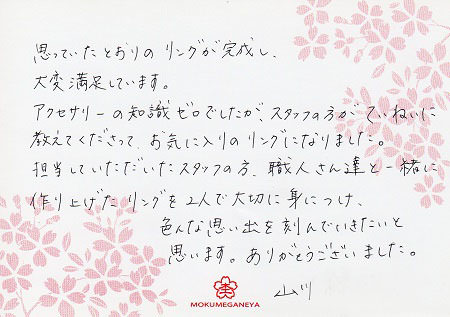 思っていたとおりの リングが完成し、
大変満足しています。
アクセサリーの知識ゼロでしたが、スタッフの方がていねいに
教えてくださって、お気に入りのリングになりました。
担当していただいたスタッフの方、職人さん達と一緒に
作り上げたリングを2人で大切に身につけ、
色んな思い出を刻んでいきたいと
思います。ありがとうございました。
山川
MOKUMEGANEYA